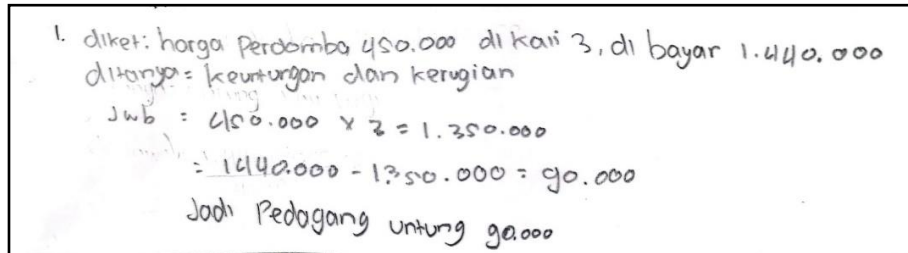 1. diket: harga perdomba 450.000 di kali 3, di bayar 1.440.000
ditanya = keunturgan dan kerugian
Jwb : 450.000 x 3 = 1.350.000
= 1440.000 - 1350.000 = 90.000
Jadi Pedagang untung 90.000